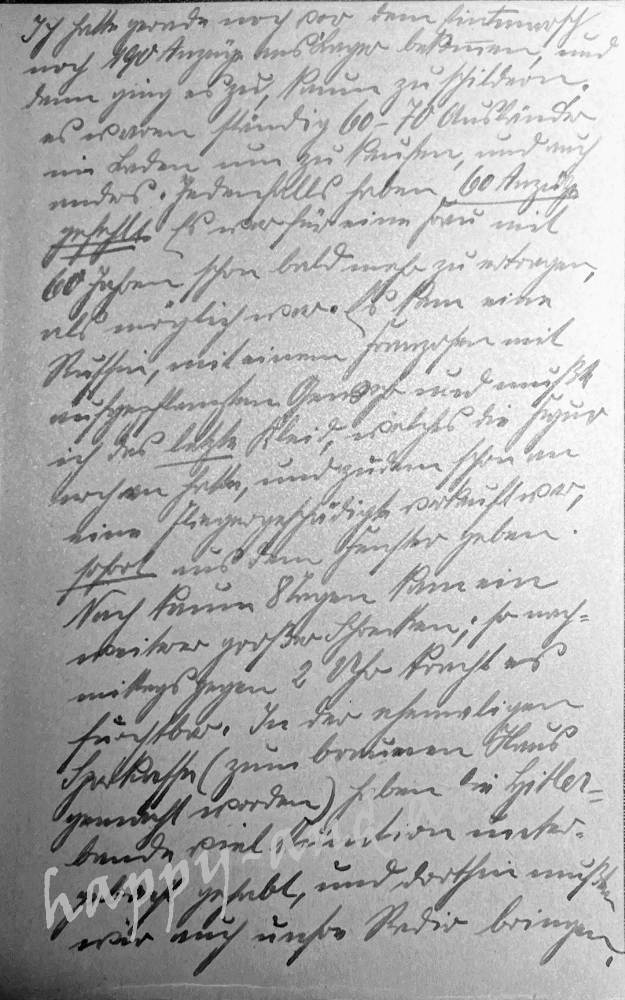 Ich hatte gerade noch vor dem Einmarsch
noch 190 Anzüge ans Lager bekommen, und
dann ging es zu, kaum zu schildern.
es waren ständig 60-70 Ausländer
im Laden um zu kaufen, und auch
anders. Jedenfalls haben 60 Anzüge
gefehlt. Es war für eine Frau mit
60 Jahren schon bald mehr zu ertragen,
als möglich war. Es kam eine
Russin, mit einem Franzosen mit
aufgepflanztem Gewehr und mußte
ich das letzte Kleid, welches die Figur
noch an hatte, und zudem schon an
eine Fliegergeschädigte verkauft war,
sofort aus dem Fenster geben.
Nach kaum 8 Tagen kam ein
weiterer großer Schrecken; so nach=
mittags gegen 2 Uhr kracht es
furchtbar. In der ehemaligen
Sparkasse (zum braunen Haus
gemacht worden) haben die Hitler=
bande viel Munition unter-
gebracht gehabt, und dorthin mußten
wir auch unsre Radio bringen.
happy-and